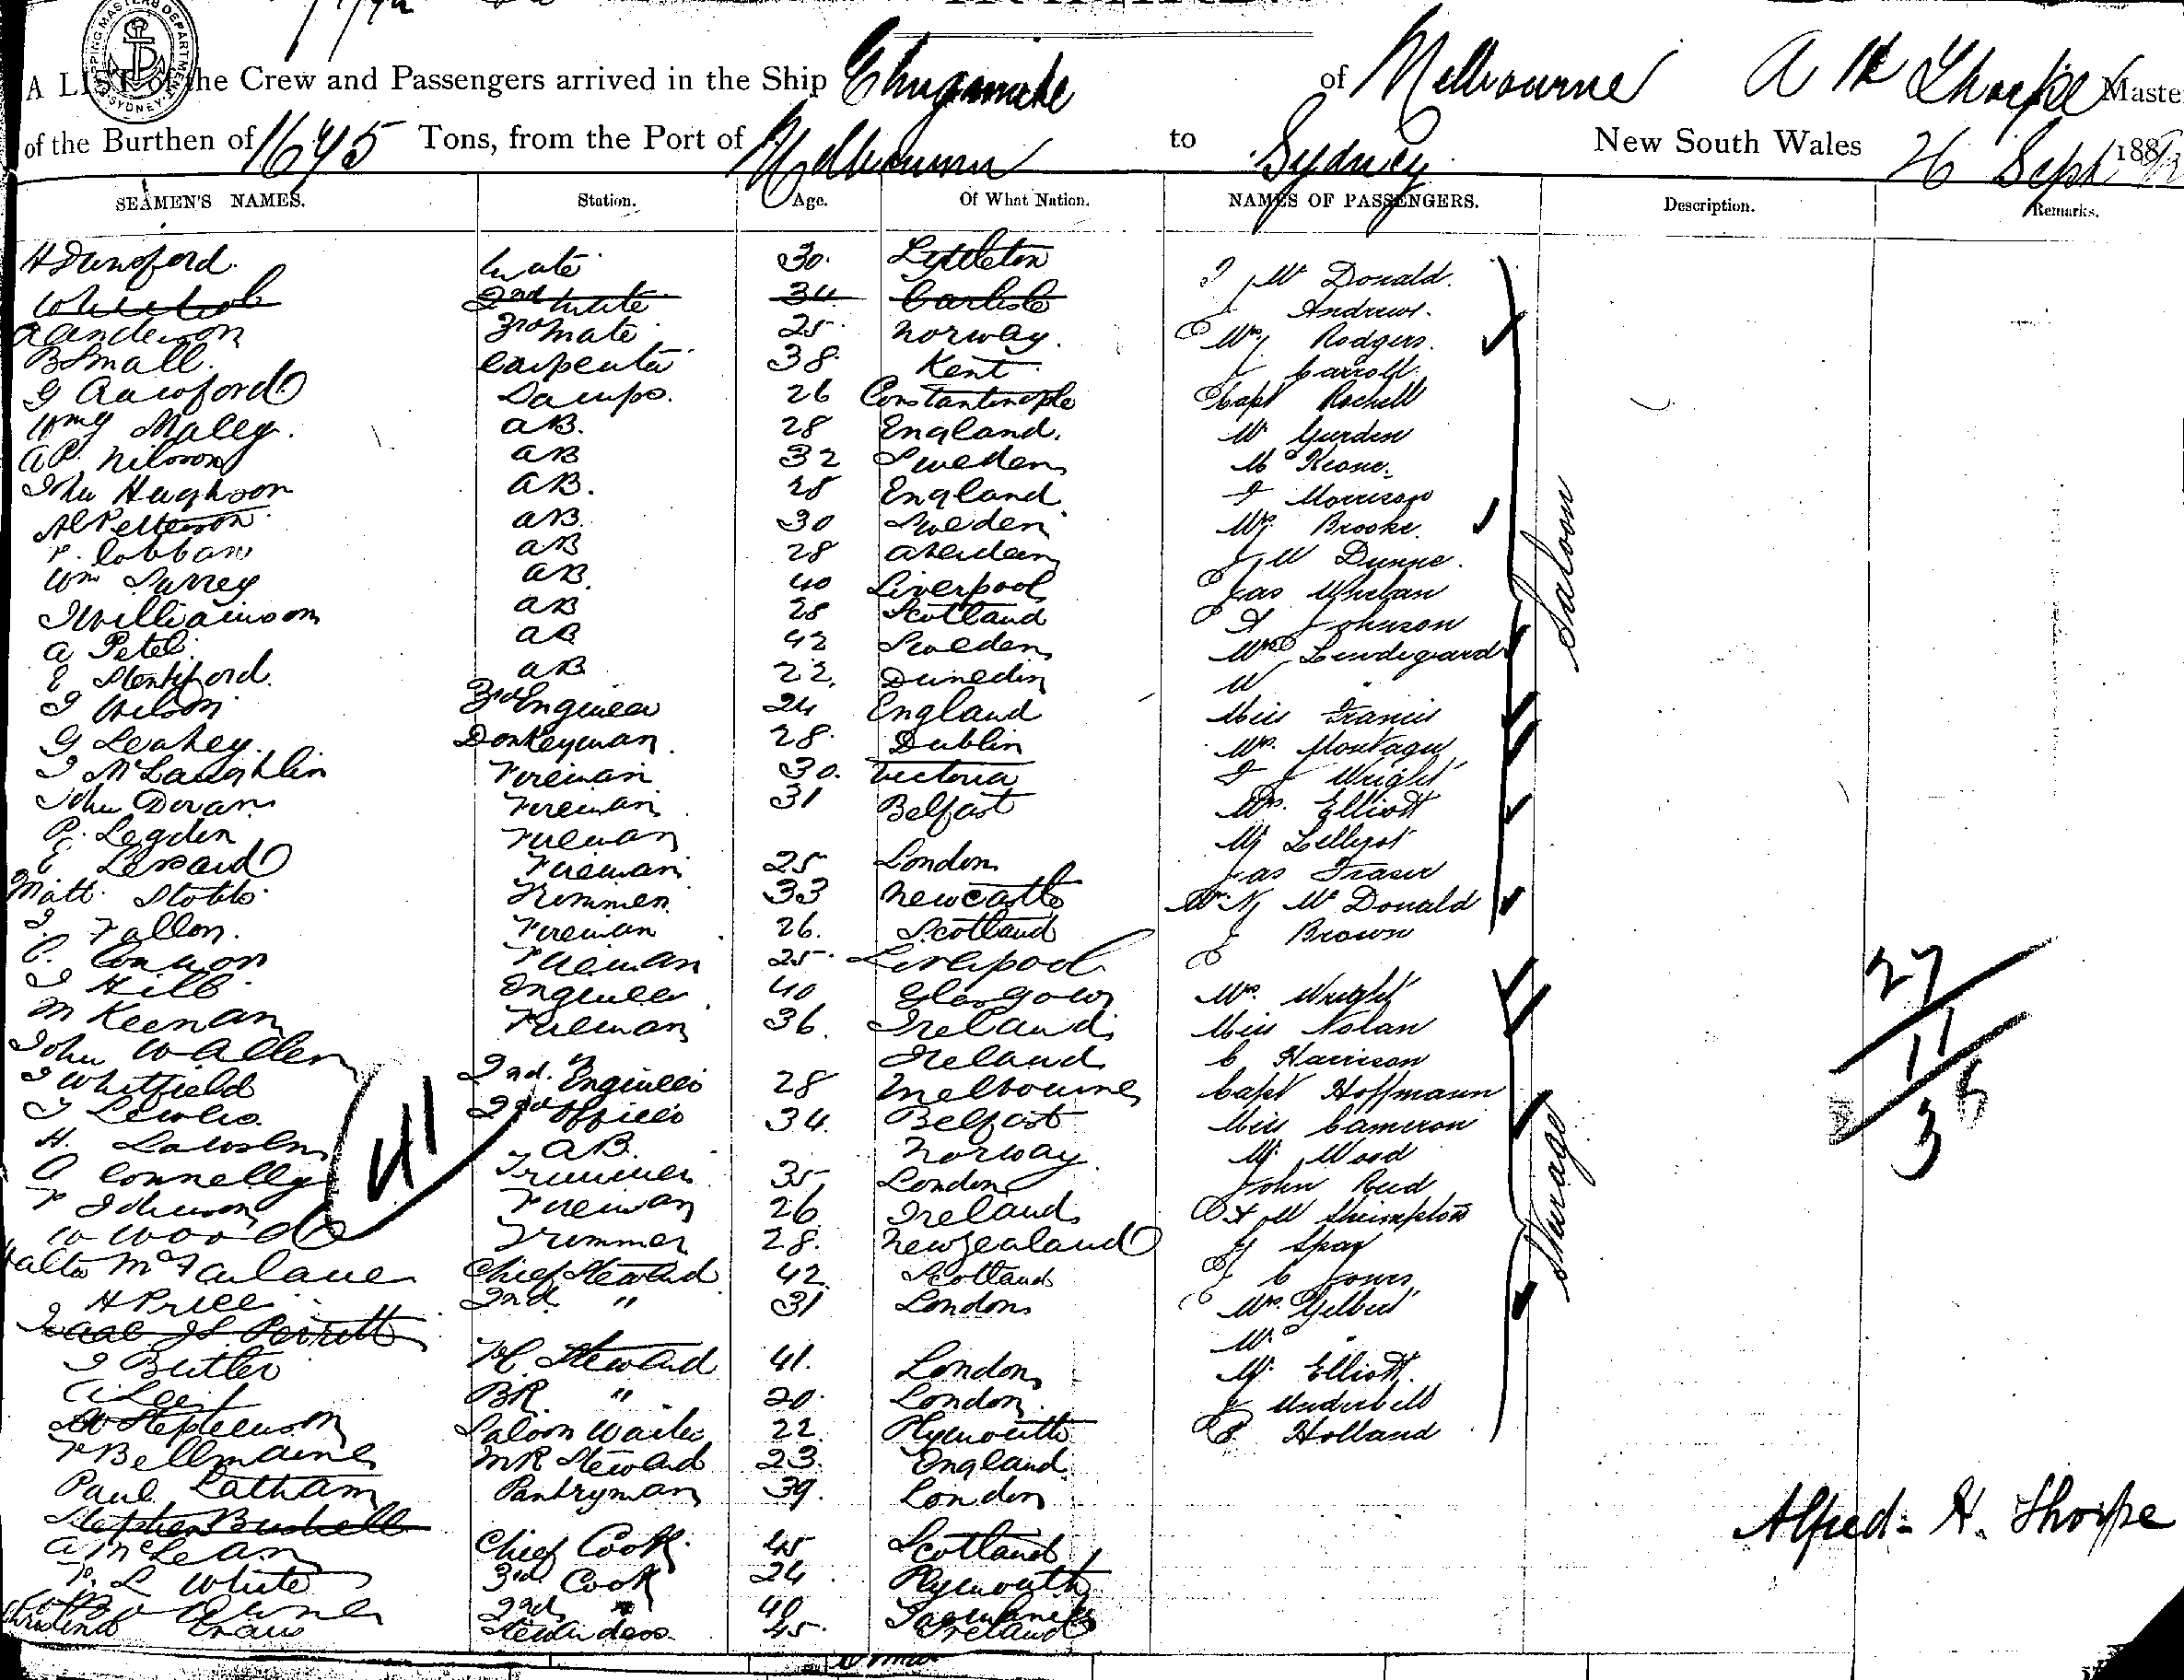 SHIPPING MASTER'S DEPARTMENT SYDNEY
A LIST of the Crew and Passengers arrived in the Ship of Melbourne A H Thorpe Master
of the Burthen of 1645 Tons, from the Port of Melbourne to Sydney New South Wales 26 Sept 188
SEAMEN'S NAMES. Station. Age. Of What Nation. NAMES OF PASSENGERS. Description. Remarks.
H Dunsford. Mate 30. Lyttleton
2nd Mate 34 Carlisle
A Anderson 3rd Mate 25. Norway.
B Small. Carpenter 38. Kent
G Crawford Lamps. 26 Constantinople
Wm Maley. AB. 28 England.
A P. Nilsson AB 32 Sweden
John Hughson AB. 28 England
Al Petterson AB. 30 Sweden
P. Cobban AB 28 Aberdeen
Wm Surrey AB. 40 Liverpool
J Williamson AB 28 Scotland
A Petel. AB 42 Sweden
E Stentiford. AB 22. Dunedin
J Wilson 3rd Engineer 24 England
G Leahey. Donkeyman. 28. Dublin
J McLaughlin Fireman 30. Victoria
John Doran Fireman 31 Belfast
P. Legden Fireman
E Lessard Fireman 25 London
Matt. Stobbs Trimmer. 33 Newcastle
J. Fallon. Fireman 26. Scotland
C. Connon Fireman 25. Liverpool
J Hill Engineer 40 Glasgow
M Keenan Fireman 36. Ireland
John Wallen Ireland
J Whitfield 2nd. Engineer 28 Melbourne
J Lewis. 2nd Officer 34. Belfast
H. Lawson A.B. Norway
C Connelly Trimmer 35 London
F Johnson Fireman 26 Ireland
W Woods Trimmer 28. New Zealand
Walter McFarlane Chief Steward 42 Scotland
H Price 2nd " 31 London
Isaac Js Perrett
J Butler F.C. Steward 41. London
C. Lee BR. " 20. London.
W Stephenson Saloon Waiter 22. Plymouth
F Bellmaine MR Steward 23. England
Paul Latham Pantryman 39. London
Stephen Bushell
A McLean Chief Cook. 45 Scotland
F. L White 3rd Cook 24 Plymouth
2nd " 40 Tasmania
Christina Evans Stewardess. 45. Ireland
41
J McDonald.
J Andrews.
Mrs Rodgers.
J Carroll.
Capt Rochell
W Gurden
M Keane.
J Morrison
Mrs Brooke.
J W Dunne.
Jas Whelan
A Johnson
Mrs Lundegaard
W "
Miss Francis
Mrs. Montague
J J Wright
Mrs. Elliott
Jas Fraser
Mrs N McDonald
E Brown
Saloon
Mrs. Wright
Miss Nolan
C Harrison
Capt Hoffmann
Miss Cameron
M. Wood
John Reid
W Shrimpton
J C Jones
Mrs. Gilbert
M. "
M. Elliott.
J Underhill
E Holland
Steerage
27
11
38
Alfred - H. Thorpe